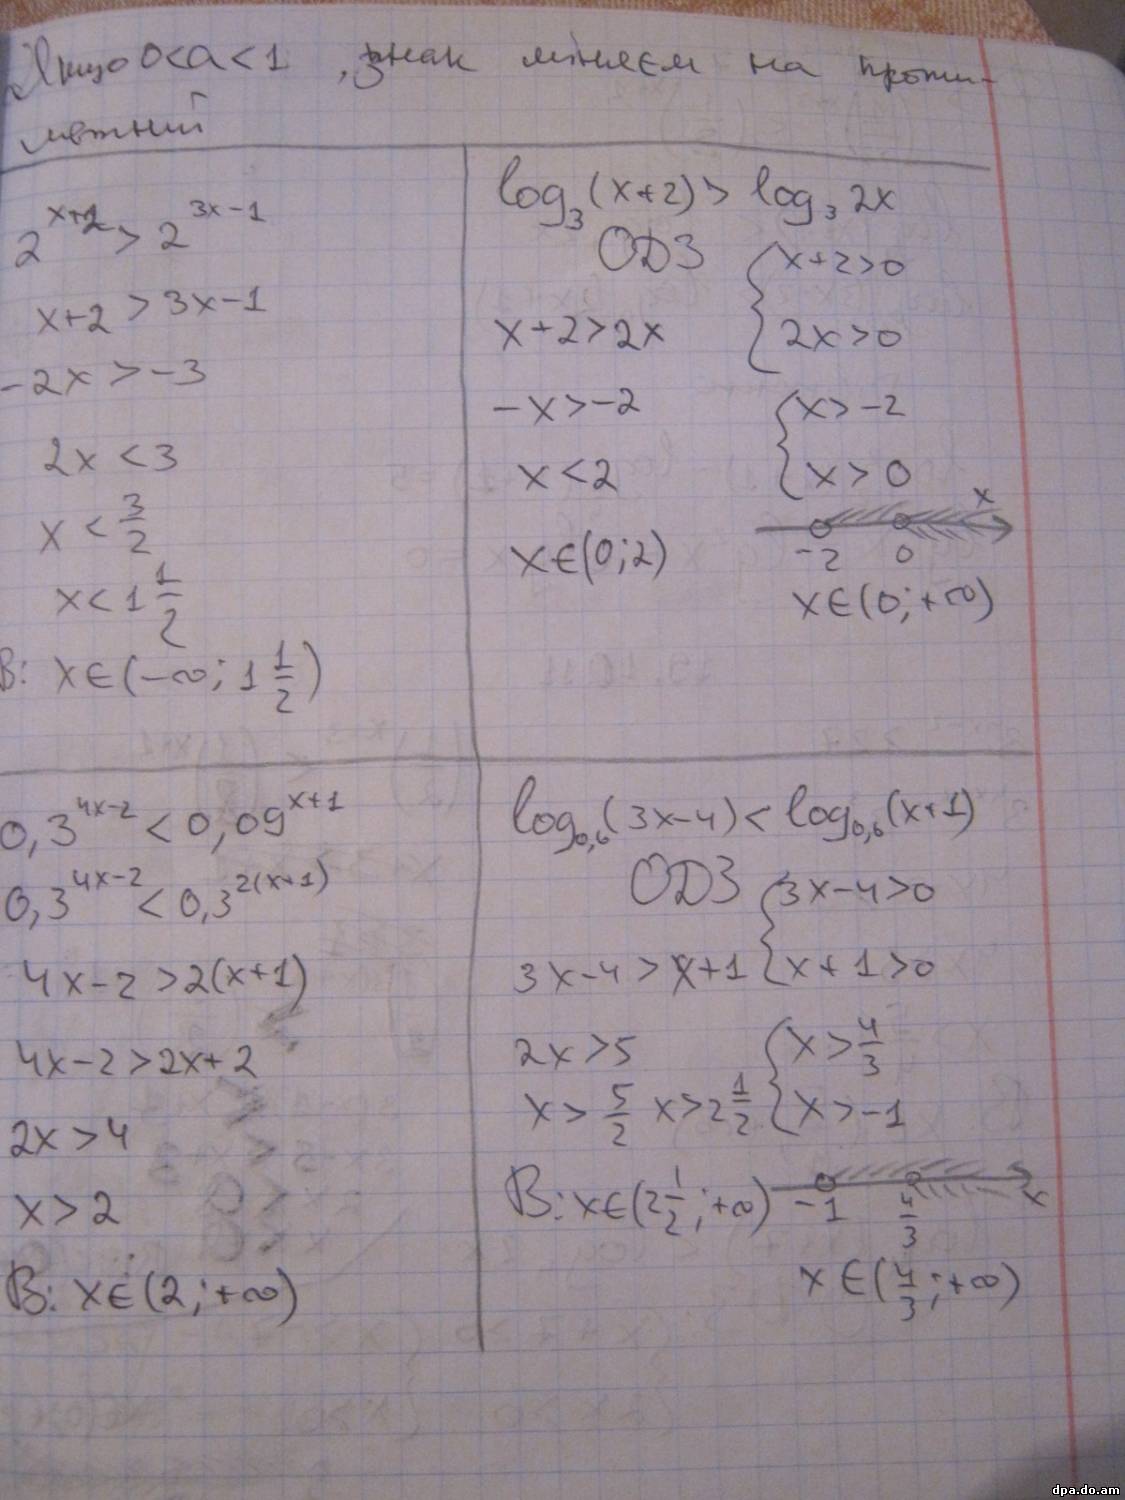 Якщо 0<a<1, знак міняєм на проти-
лежний
2^{x+2} > 2^{3x-1}
x+2 > 3x-1
-2x > -3
2x < 3
x < \frac{3}{2}
x < 1\frac{1}{2}
В: x∈(-∞; 1\frac{1}{2})
log_3(x+2) > log_3 2x
ОДЗ { x+2>0
x+2>2x 2x>0
-x>-2 { x>-2
x<2 x>0
x
-2 0
x∈(0;2)
x∈(0;+∞)
0,3^{4x-2} < 0,09^{x+1}
0,3^{4x-2} < 0,3^{2(x+1)}
4x-2 > 2(x+1)
4x-2 > 2x+2
2x > 4
x > 2
В: x∈(2;+∞)
log_{0,6}(3x-4) < log_{0,6}(x+1)
ОДЗ { 3x-4>0
3x-4 > x+1 x+1>0
2x>5 { x>\frac{4}{3}
x>\frac{5}{2} x>2\frac{1}{2} x>-1
В: x∈(2\frac{1}{2};+∞) -1 \frac{4}{3} x
x∈(\frac{4}{3};+∞)
dpa.do.am